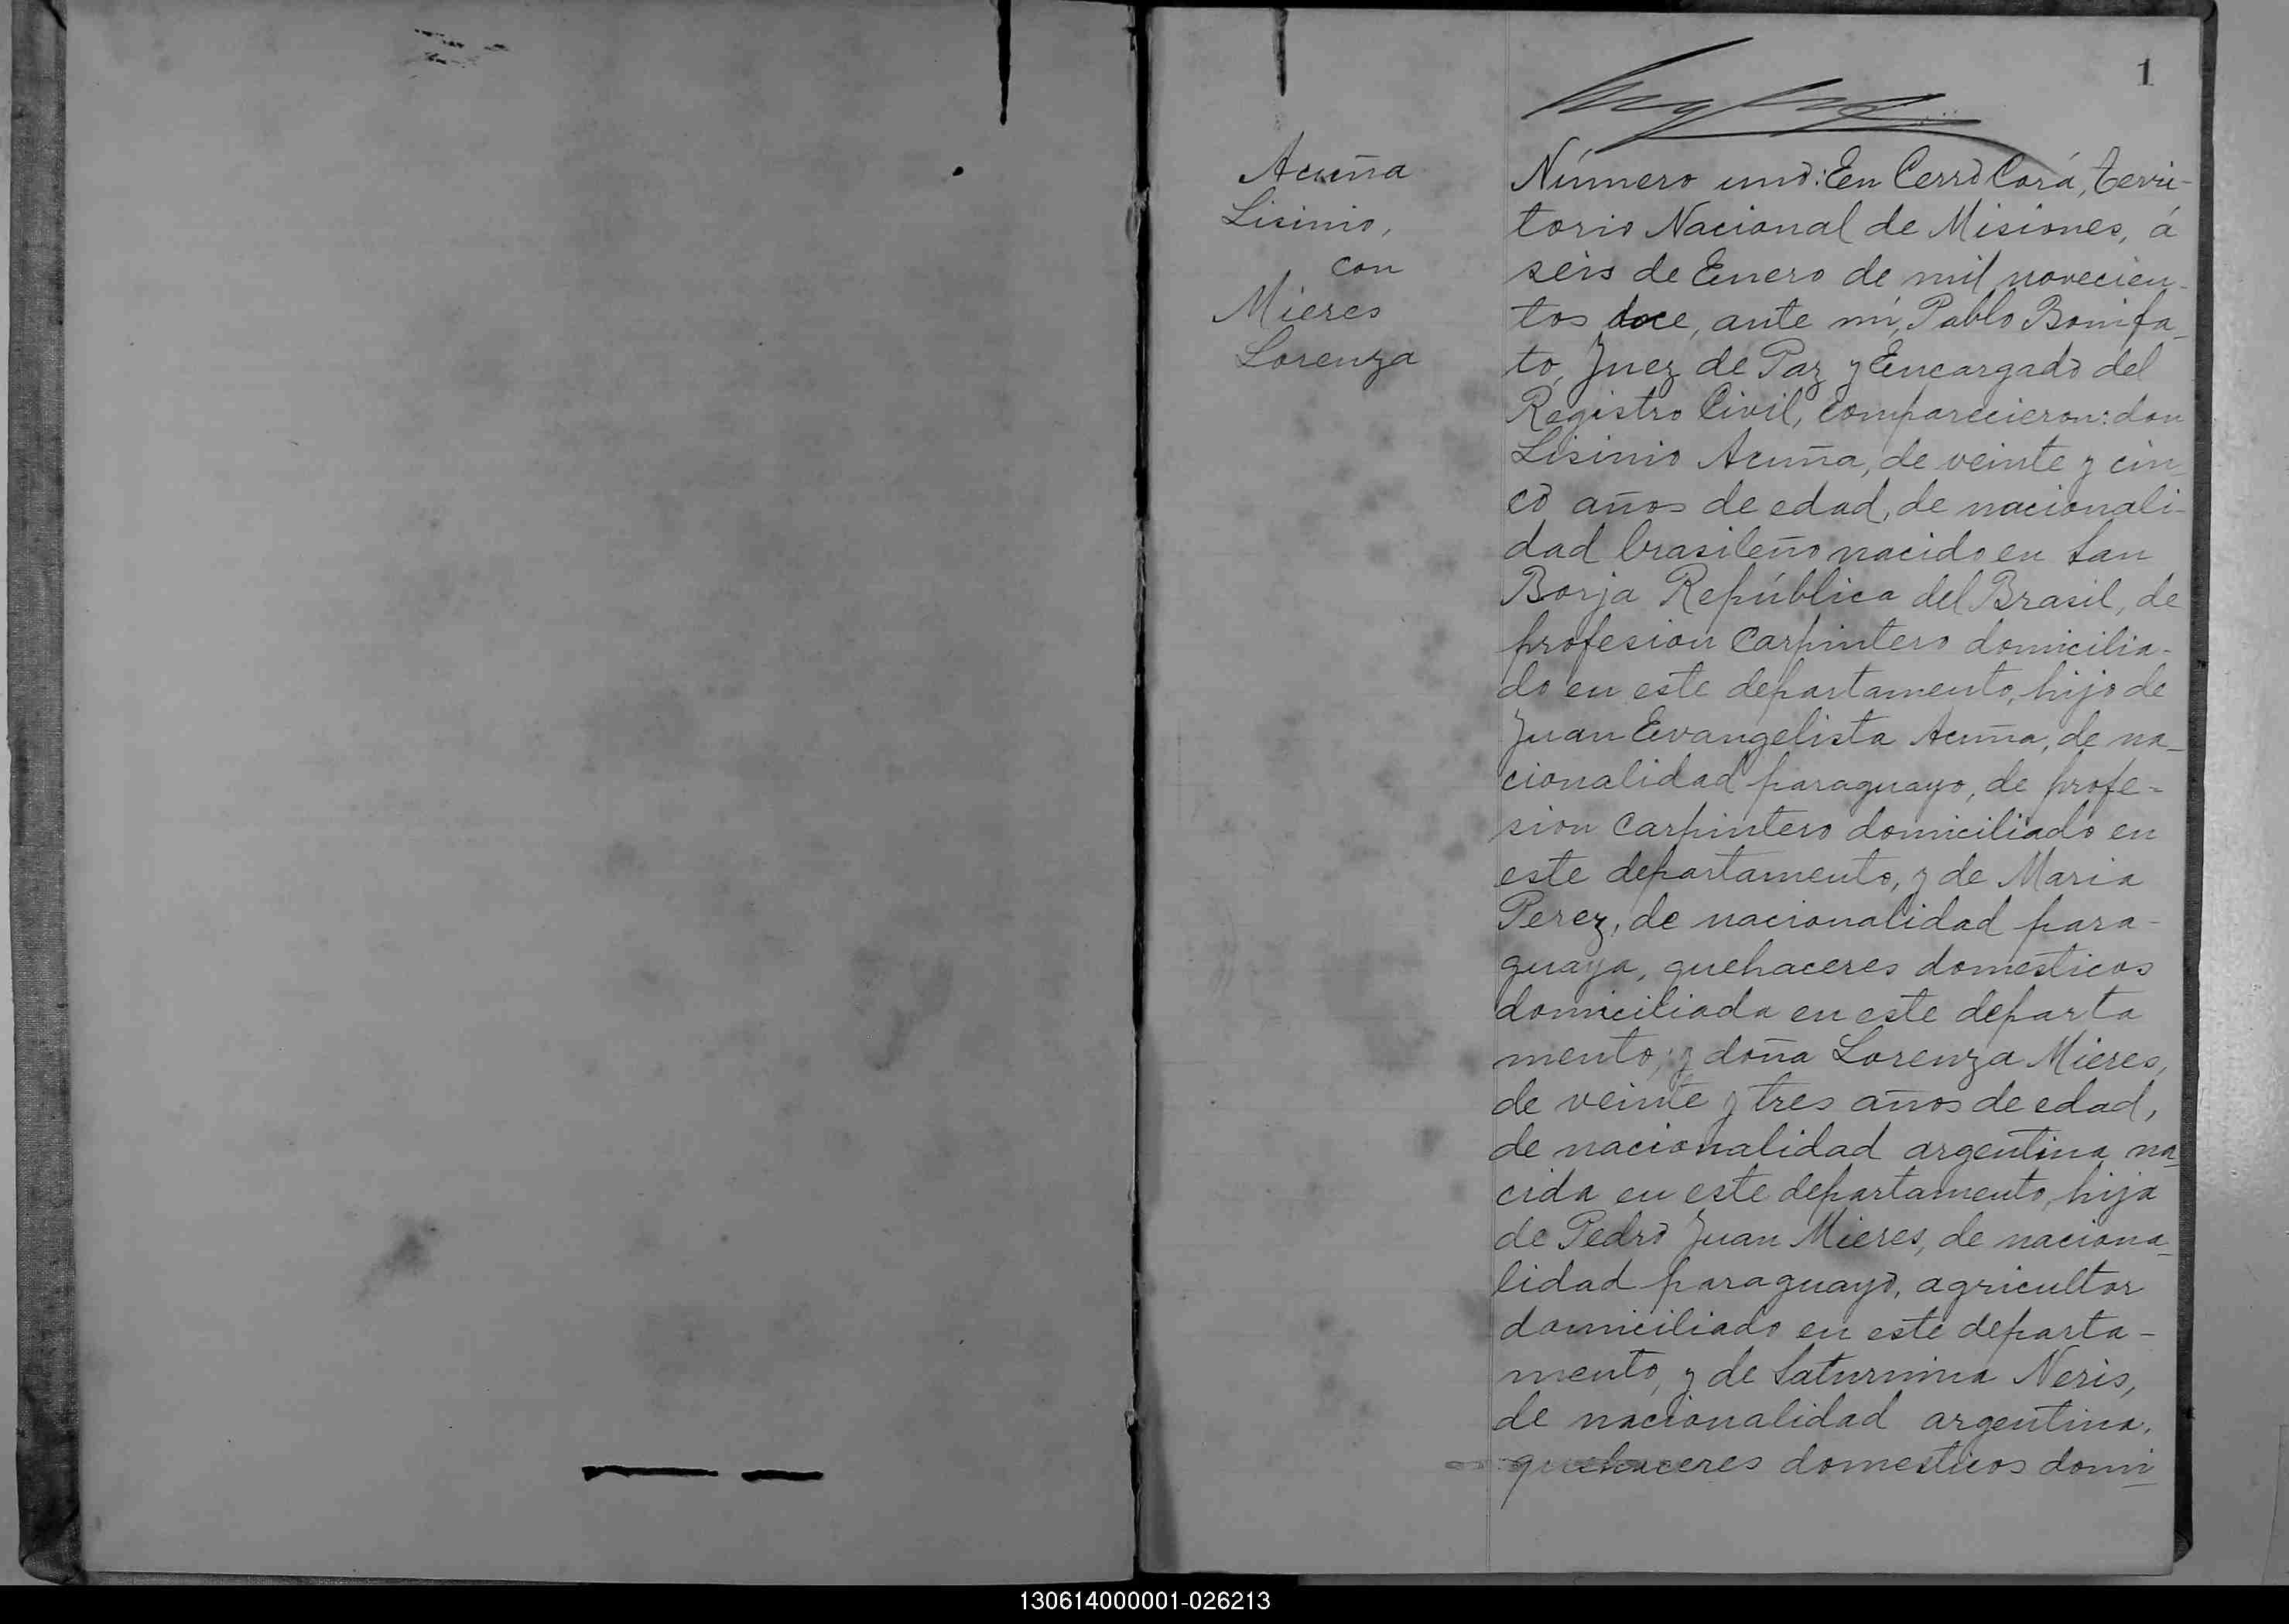 1
Acuña
Lisinio,
con
Mieres
Lorenza
Número uno: En Cerro Corá, terri-
torio Nacional de Misiones, á
seis de Enero de mil novecien-
tos doce, ante mí, Pablo Bonifa-
to, Juez de Paz y Encargado del
Registro Civil, comparecieron: don
Lisinio Acuña, de veinte y cin-
co años de edad, de nacionali-
dad brasileño nacido en San
Borja República del Brasil, de
profesion Carpintero domicilia-
do en este departamento, hijo de
Juan Evangelista Acuña, de na-
cionalidad paraguayo, de profe-
sion Carpintero domiciliado en
este departamento, y de Maria
Perez, de nacionalidad para-
guaya, quehaceres domesticos
domiciliada en este departa
mento; y doña Lorenza Mieres,
de veinte y tres años de edad,
de nacionalidad argentina na-
cida en este departamento, hija
de Pedro Juan Mieres, de naciona-
lidad paraguayo, agricultor
domiciliado en este departa-
mento, y de Saturnina Neris,
de nacionalidad argentina,
quehaceres domesticos domi-
130614000001-026213